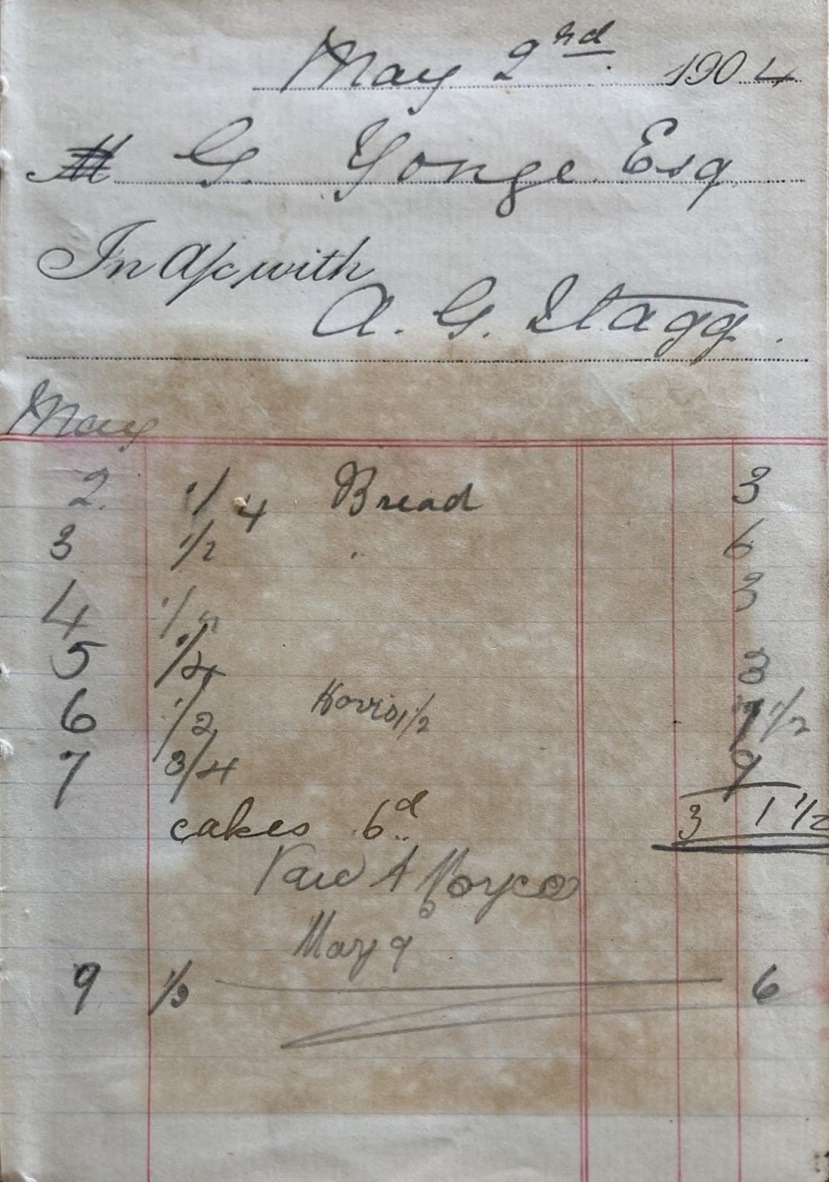 May 2nd 1904
G. Yonge Esq
In A/c with
A. G. Stagg.
May
2. 1/4 Bread 3
3 1/2 " 6
4 1/4 3
5 1/4 3
6 1/2 Hovis 1/2 7 1/2
7 3/4 9
cakes 6d
3 1 1/2
A
May 9
9 1/2 6